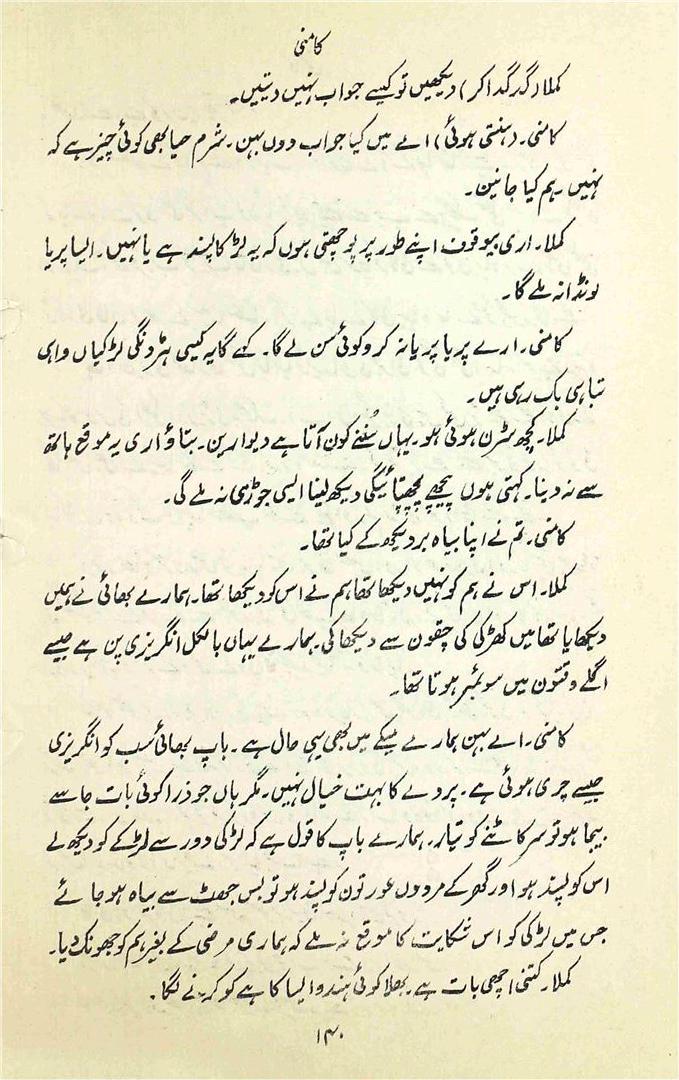 کامنی
کملا (گدگدا کر) دیکھیں تو کیسے جواب نہیں دیتیں۔
کامنی۔ (ہنستی ہوئی) اے میں کیا جواب دوں بہن۔ شرم حیا بھی کوئی چیز ہے کہ
نہیں۔ ہم کیا جانین۔
کملا۔ اری بیوقوف اپنے طور پر پوچھتی ہوں کہ یہ لڑکا پسند ہے یا نہیں۔ ایسا پریا
لونڈا نہ ملے گا۔
کامنی۔ ارے پریا پریا نہ کرو کوئی سن لے گا۔ کہے گا یہ کیسی ہڑدنگی لڑکیاں واہی
تباہی بک رہی ہیں۔
کملا۔ کچھ سڑن ہوئی ہو۔ یہاں سُننے کون آتا ہے دیوارین۔ بتاؤ اری یہ موقع ہاتھ
سے نہ دینا۔ کہتی ہوں پیچھے پچھتائیگی دیکھ لینا ایسی جوڑی نہ ملے گی۔
کامنی۔ تم نے اپنا بیاہ بر دیکھ کے کیا تھا۔
کملا۔ اس نے ہم کو نہیں دیکھا تھا ہم نے اس کو دیکھا تھا۔ ہمارے بھائی نے ہمیں
دیکھایا تھا میں کھڑکی کی چقون سے دیکھا کی۔ ہمارے یہاں بالکل انگریزی پن ہے جیسے
اگلے وقتون میں سوئمبر ہوتا تھا۔
کامنی۔ اے بہن ہمارے میکے میں بھی یہی حال ہے۔ باپ بھائی سب کو انگریزی
جیسے چری ہوئی ہے۔ پردے کا بہت خیال نہیں۔ مگر ہاں جو ذرا کوئی بات جا سے
بیجا ہو تو سر کاٹنے کو تیار۔ ہمارے باپ کا قول ہے کہ لڑکی دور سے لڑکے کو دیکھ لے
اس کو پسند ہو اور گھر کے مردوں عورتون کو پسند ہو تو بس جھٹ سے بیاہ ہو جائے
جس میں لڑکی کو اس شکایت کا موقع نہ ملے کہ ہماری مرضی کے بغیر ہم کو جھونک دیا۔
کملا۔ کتنی اچھی بات ہے۔ بھلا کوئی ہندو ایسا کاہے کو کرنے لگا۔
۱۴۰